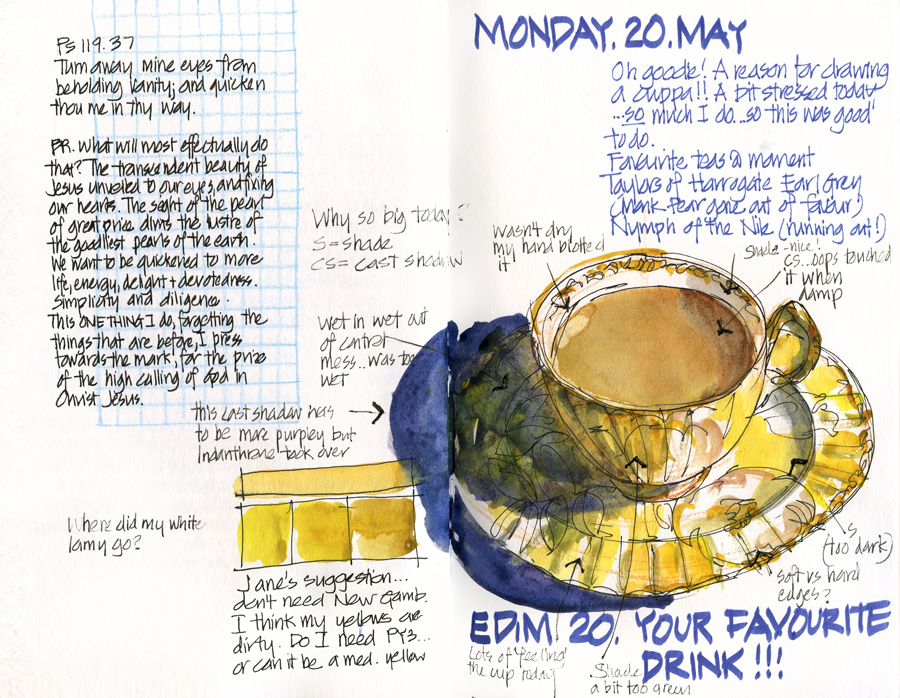 Ps 119.37
Turn away mine eyes from
beholding vanity; and quicken
thou me in thy way.
PR. What will most effectually do
that? The transcendent beauty of
Jesus unveiled to our eyes, and fixing
our hearts. The sight of the pearl
of great price dims the lustre of
the goodliest pearls of the earth.
We want to be quickened to more
life, energy, delight + devotedness.
Simplicity and diligence.
This ONE THING I do, forgetting the
things that are before, I press
towards the mark, for the prize
of the high calling of God in
Christ Jesus.
Why so big today?
S = shade
CS = cast shadow
Wet in wet out
of control
mess.. was too
wet
this cast shadow has
to be more purpley but
Indanthrone took over
Where did my white
lamy go?
Jane's suggestion...
don't need New Gamb.
I think my yellows are
dirty. Do I need PY3...
or can it be a med. yellow
MONDAY. 20. MAY
Oh goodie! A reason for drawing
a cuppa!! A bit stressed today
...so much I do...so this was good
to do.
Favourite teas @ moment
Taylors of Harrogate Earl Grey
(Monk Pear gone out of favour)
Nymph of the Nile (running out!)
Wasn't dry
my hand blotted
it
Shade - nice!
CS...oops touched
it when
damp
S
(too dark)
soft vs hard
edges?
EDIM 20. YOUR FAVOURITE
DRINK!!!
Lots of 'feeling'
the cup today
Shade
a bit too green